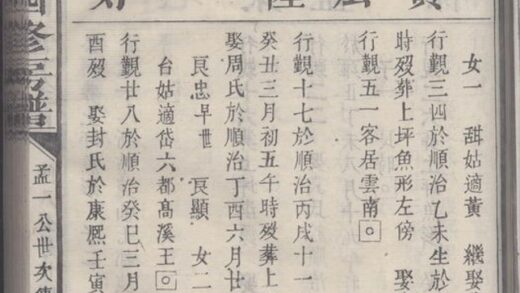 女一 甜姑適黃 繼娶
行觀三四於順治乙未生於
時歿葬上坪魚形左傍 娶
行觀五一客居雲南
行觀十七於順治丙戌十一
癸丑三月初五午時歿葬上
娶周氏於順治丁酉六月廿
良忠早世 良顯 女二
台姑適岱六都高溪王
行觀廿八於順治癸巳三月
酉歿 娶封氏於康熙壬寅
修房譜
孟一公世次